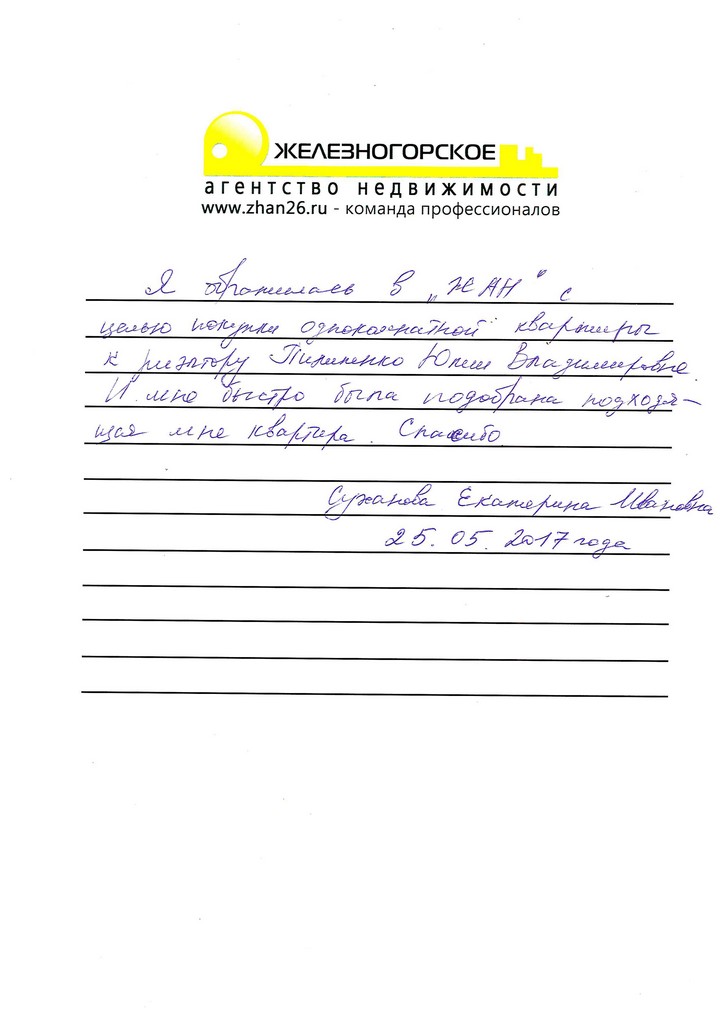 ЖЕЛЕЗНОГОРСКОЕ
агентство недвижимости
www.zhan26.ru - команда профессионалов
Я обратилась в „ЖАН" с
целью покупки однокомнатной квартиры
к риэлтору Пилипенко Юлии Владимировне.
И мне быстро была подобрана подходя-
щая мне квартира. Спасибо
Суханова Екатерина Ивановна
25.05.2017 года